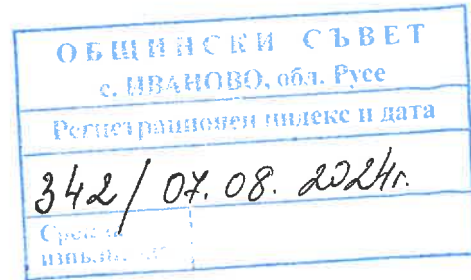 ОБЩИНСКИ СЪВЕТ
с. ИВАНОВО, обл. Русе
Регистрационен индекс и дата
342/07.08.2024г.
Срок за